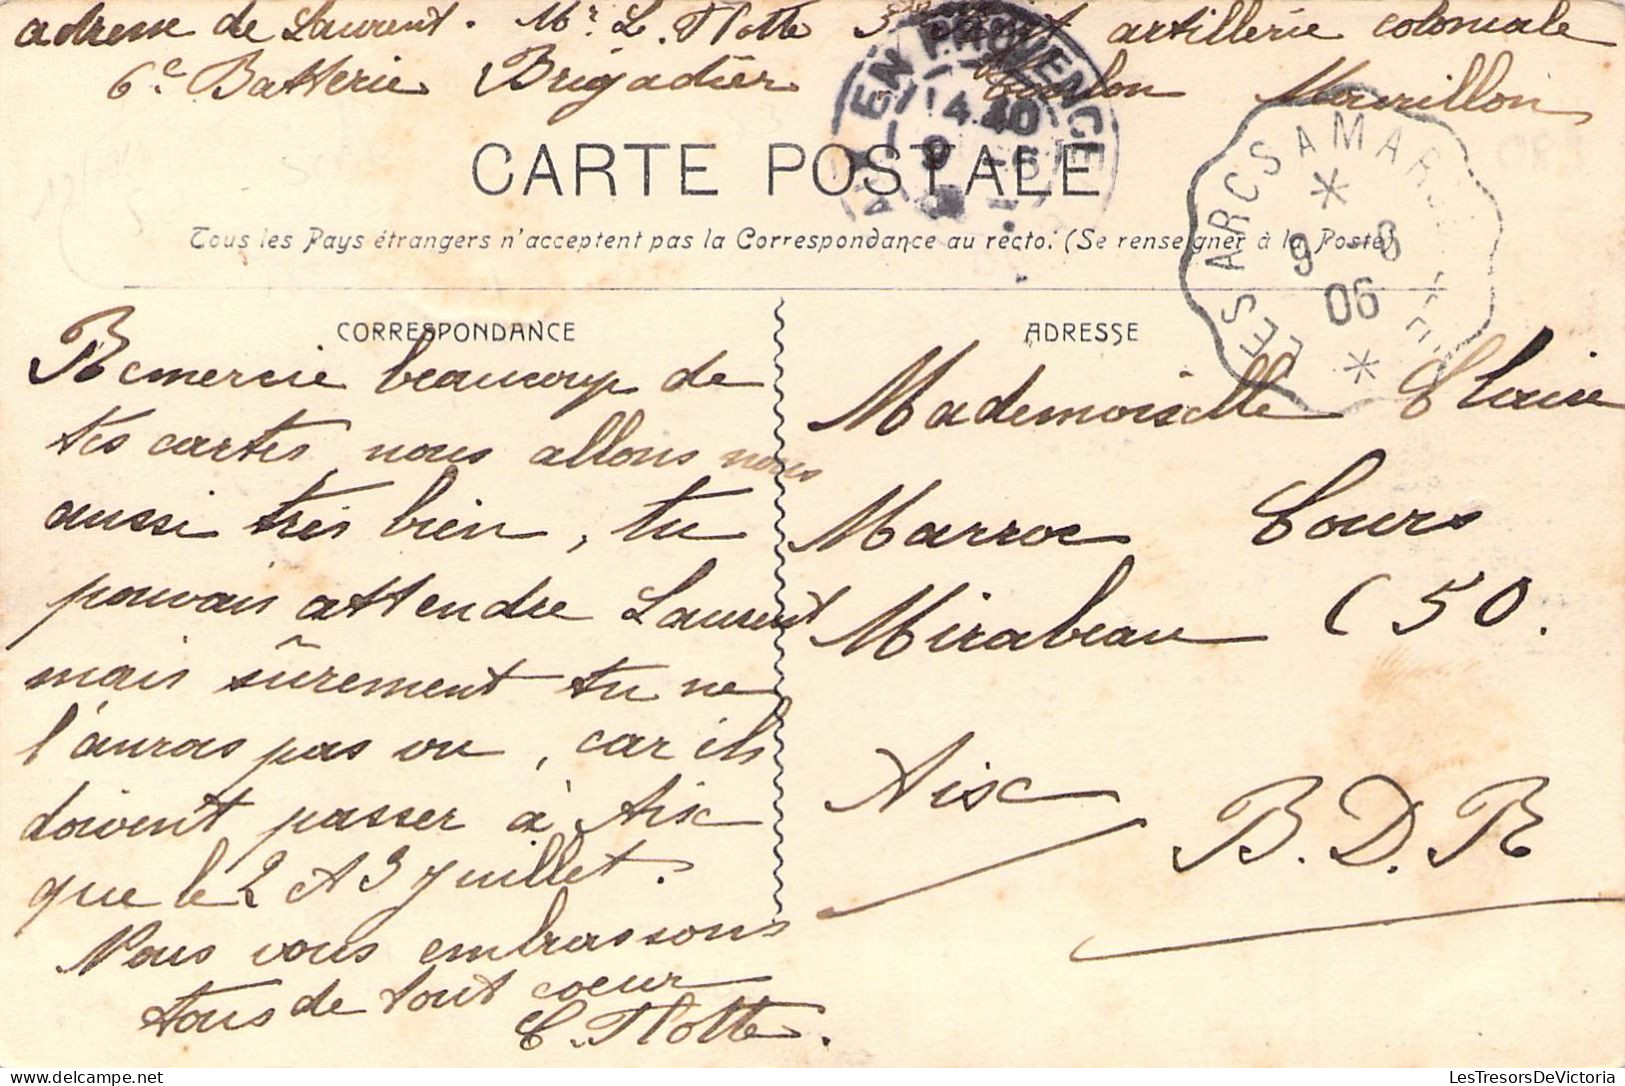 adresse de Laurent. Mr. L. Flotte 3e artillerie coloniale
6e Batterie Brigadier Toulon Mourillon
EN PROVENCE
14.40
9 -6
LES ARCS A MARSEILLE
9 -6
06
CARTE POSTALE
Tous les Pays étrangers n'acceptent pas la Correspondance au recto. (Se renseigner à la Poste)
CORRESPONDANCE
Remercie beaucoup de
tes cartes, nous allons nous
aussi très bien, tu
pouvais attendre Laurent
mais sûrement tu ne
l'auras pas vu, car ils
doivent passer à Aix
que le 2 et 3 Juillet.
Nous vous embrassons
tous de tout coeur
C. Flotte.
ADRESSE
Mademoiselle Claire
Marroc Cours
Mirabeau (50.
Aix
B. D. R
LesTresorsDeVictoria